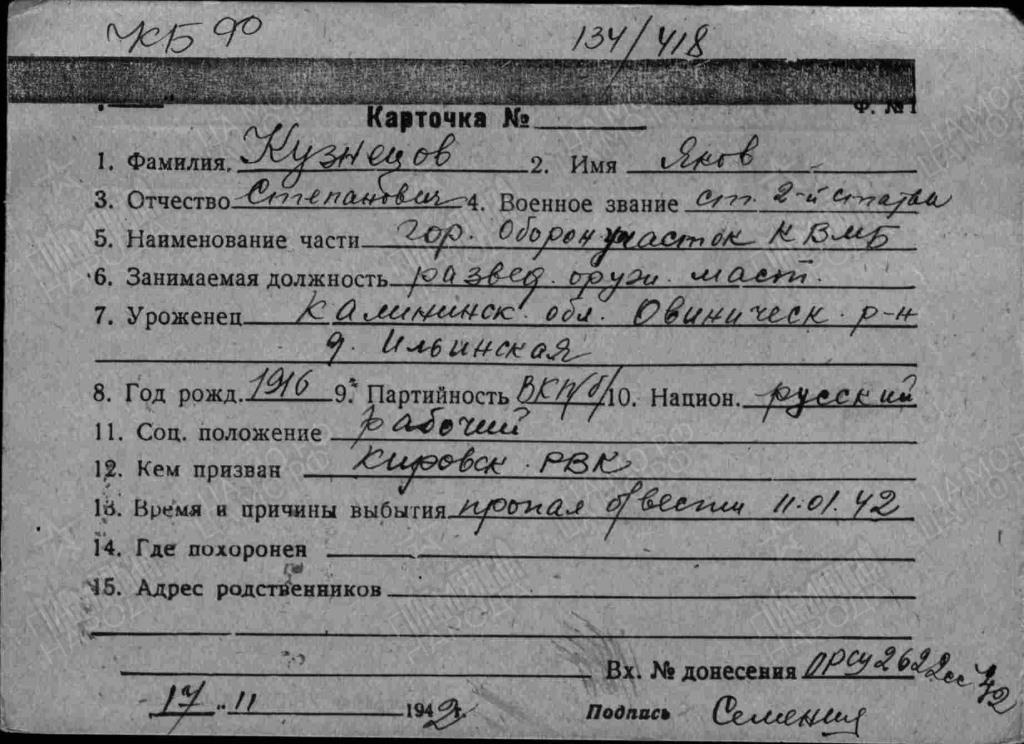 КБФ 134/418
Ф. №1
Карточка №
1. Фамилия Кузнецов 2. Имя Яков
3. Отчество Степанович 4. Военное звание ст. 2-й статьи
5. Наименование части гор. Оборон участок КВМБ
6. Занимаемая должность развед. оруж. маст.
7. Уроженец Калининск. обл. Овиническ. р-н
д. Ильинская
8. Год рожд. 1916 9. Партийность ВКП/б/ 10. Национ. русский
11. Соц. положение рабочий
12. Кем призван Кировск. РВК
13. Время и причины выбытия пропал б/вести 11.01.42
14. Где похоронен
15. Адрес родственников
Вх. № донесения 2622сс 42
17 11 1942г. Подпись